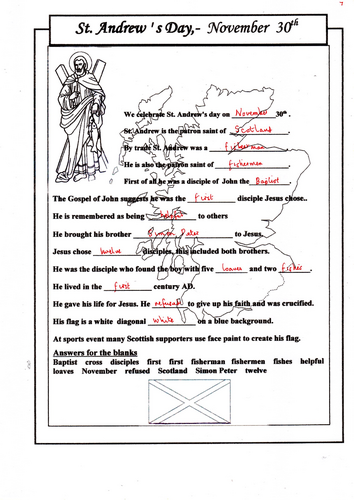 St. Andrew 's Day,- November 30th
We celebrate St. Andrew's day on November 30th.
St. Andrew is the patron saint of Scotland
By trade St. Andrew was a fisherman
He is also the patron saint of fishermen
First of all he was a disciple of John the Baptist.
The Gospel of John suggests he was the first disciple Jesus chose..
He is remembered as being to others
He brought his brother Simon Peter to Jesus.
Jesus chose twelve disciples, this included both brothers.
He was the disciple who found the boy with five loaves and two fishes.
He lived in the first century AD.
He gave his life for Jesus. He refused to give up his faith and was crucified.
His flag is a white diagonal white on a blue background.
At sports event many Scottish supporters use face paint to create his flag.
Answers for the blanks
Baptist cross disciples first first fisherman fishermen fishes helpful
loaves November refused Scotland Simon Peter twelve